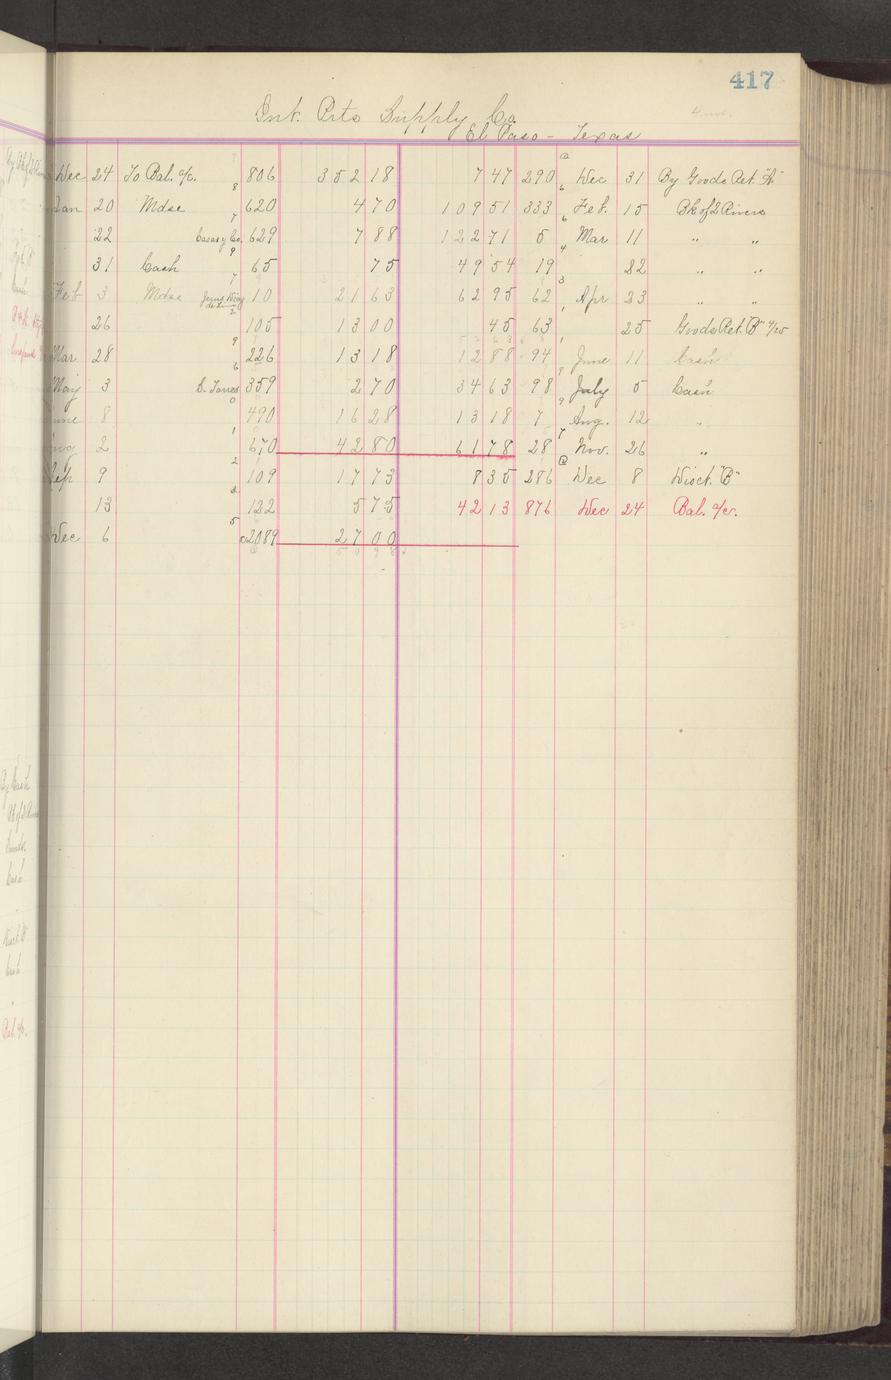 417
Int. Pcto Supply Co.
El Paso - Texas
Dec 24 To Bal. a/c. 8 806 352 18 7 47 290 @ Dec 31 By Goods Ret. "A"
Jan 20 Mdse 7 620 4 70 109 51 333 6 Feb. 15 Bk of 2 Rivers
22 Casas y Co. 629 7 88 122 71 5 6 Mar 11 " "
31 Cash 9 65 75 49 54 19 4 22 " "
Feb 3 Mdse 7 10 21 63 62 95 62 3 Apr 23 " "
26 2 105 13 00 45 63 1 25 Goods Ret. "B"
Mar 28 9 226 13 18 12 88 94 1 June 11 Cash
May 3 S. Torres 6 359 2 70 34 63 98 8 July 5 Cash
June 8 0 490 16 28 13 18 7 9 Aug. 12 "
Aug 2 1 670 42 80 61 78 28 7 Nov. 26 "
Sep 9 2 109 17 73 8 35 286 @ Dec 8 Disct. "B"
13 2 122 5 75 42 13 876 Dec 24 Bal. a/c.
Dec 6 5 2089 27 00